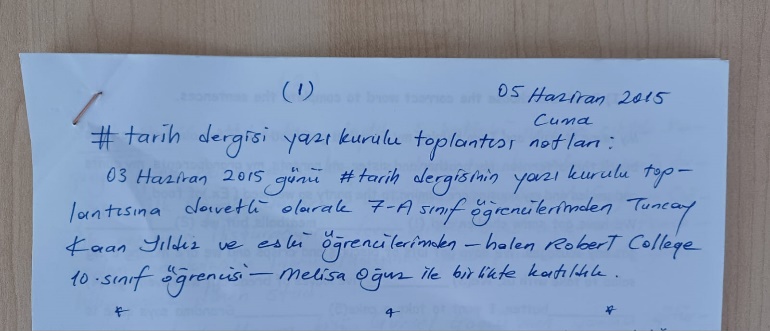 (1)
05 Haziran 2015
Cuma
# tarih dergisi yazı kurulu toplantısı notları :
03 Haziran 2015 günü #tarih dergisinin yazı kurulu top-
lantısına davetli olarak 7-A sınıf öğrencilerimden Tuncay
Kaan Yıldız ve eski öğrencilerimden – halen Robert College
10. sınıf öğrencisi – Melisa Oğuz ile birlikte katıldık.
* * *